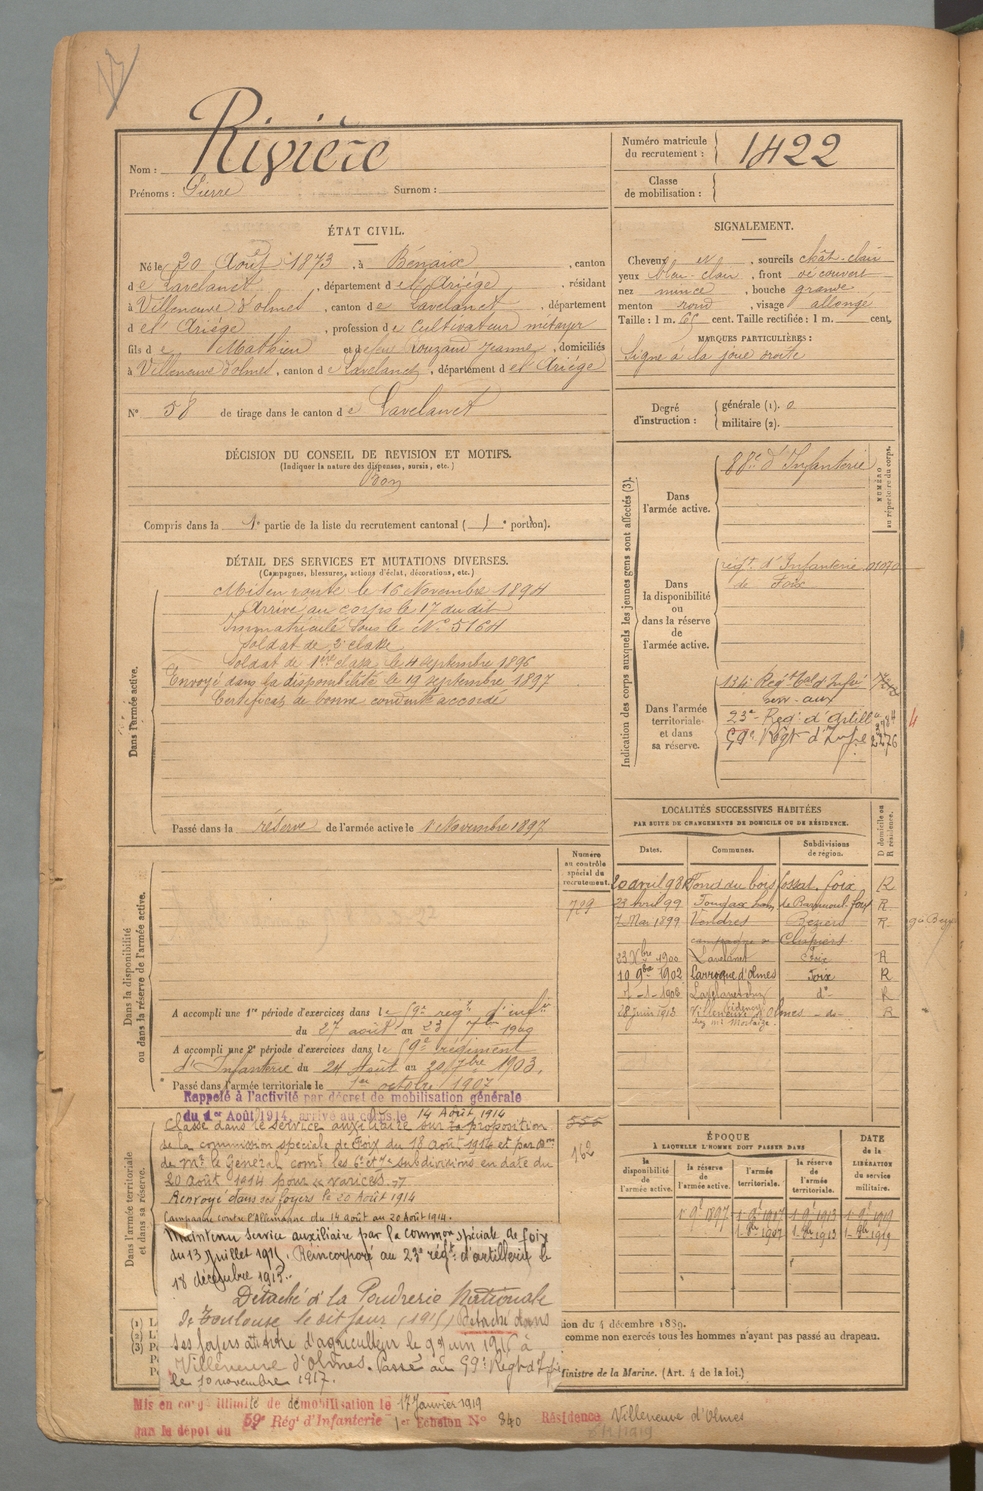 Rivière
Nom :
Prénoms : Pierre Surnom :
Numéro matricule du recrutement : 1422
Classe de mobilisation :
ÉTAT CIVIL.
Né le 20 Août 1873, à Bénaix, canton
de Lavelanet, département de l'Ariège, résidant
à Villeneuve d'olmes, canton de Lavelanet, département
de l'Ariège, profession de Cultivateur métayer
fils de Mathieu et de Rouzaud Jeanne, domiciliés
à Villeneuve d'olmes, canton de Lavelanet, département de l'Ariège
N° 58 de tirage dans le canton de Lavelanet
SIGNALEMENT.
Cheveux sourcils chât-clair
yeux bleu-clair, front découvert
nez mince, bouche grande
menton rond, visage allongé
Taille : 1 m. 65 cent. Taille rectifiée : 1 m. cent.
MARQUES PARTICULIÈRES :
Signe à la joue droite
Degré d'instruction : générale (1). 0
militaire (2).
DÉCISION DU CONSEIL DE REVISION ET MOTIFS.
(Indiquer la nature des dispenses, sursis, etc.)
Bon
Compris dans la 1e partie de la liste du recrutement cantonal (1e portion).
DÉTAIL DES SERVICES ET MUTATIONS DIVERSES.
(Campagnes, blessures, actions d'éclat, décorations, etc.)
Dans l'armée active.
Mis en route le 16 Novembre 1894
Arrivé au corps le 17 du dit
Immatriculé sous le N° 5164
Soldat de 2e classe
Soldat de 1ère classe le 4 septembre 1896
Envoyé dans la disponibilité le 19 septembre 1897
Certificat de bonne conduite accordé
Passé dans la réserve de l'armée active le 1 Novembre 1897
Indication des corps auxquels les jeunes gens sont affectés (3).
NUMÉRO au répertoire du corps.
Dans l'armée active.
88e d'Infanterie
Dans la disponibilité ou dans la réserve de l'armée active.
régt. d'Infanterie
de Foix
Dans l'armée territoriale et dans sa réserve.
134e Regt tal d'Infie
serv. aux
23e Reg. d'Artill
59e Régt d'Infie 2276
4
LOCALITÉS SUCCESSIVES HABITÉES
PAR SUITE DE CHANGEMENTS DE DOMICILE OU DE RÉSIDENCE.
Dates. Communes. Subdivisions de région. D domicile ou R résidence.
20 avril 98 Fond du bois fossat. foix R
23 Avril 99 R
7 Mai 1899 Vendres Beziers R
campagne de Clapiers
23 Xbre 1900 Lavelanet Foix R
10 9bre 1902 Larroque d'olmes Foix R
7-1-1903 Lavelanet d° R
28 juin 1913 Villeneuve d'Olmes -do- R
Dans la disponibilité ou dans la réserve de l'armée active.
Numéro au contrôle spécial du recrutement.
729
A accompli une 1re période d'exercices dans le 59e régt d'infie
du 27 août au 23 7bre 1900
A accompli une 2e période d'exercices dans le 59e régiment
d'Infanterie du 24 Août au 20 7bre 1903.
Passé dans l'armée territoriale le 1er octobre 1907
Rappelé à l'activité par décret de mobilisation générale
du 1er Août 1914, arrivé au corps le 14 Août 1914
Dans l'armée territoriale et dans sa réserve.
Classé dans le service auxiliaire sur proposition
de la commission spéciale de Foix du 18 août 1914 et par Don
de Mr. le Général comt les 6e et 7e subdivisions en date du
20 août 1914 pour varices
Renvoyé dans ses foyers le 20 Août 1914
Campagne contre l'Allemagne du 14 août au 20 Août 1914.
555
162
Maintenu service auxiliaire par la common spéciale de foix
du 13 Juillet 1915. Réincorporé au 23e régt d'artillerie le
18 décembre 1915.
Détaché à la Poudrerie Nationale
de Toulouse le dit jour (1915) Détaché dans
ses foyers au titre d'agriculteur le 9 juin 1916 à
Villeneuve d'Olmes. Passé au 59e Régt d'Infie
le 10 novembre 1917.
ÉPOQUE
À LAQUELLE L'HOMME DOIT PASSER DANS
la disponibilité de l'armée active. la réserve de l'armée active. l'armée territoriale. la réserve de l'armée territoriale.
DATE de la LIBÉRATION du service militaire.
1-9e 1897 1-9e 1907 1-9e 1913 1-9e 1919
1-8bre 1907 1-8bre 1913 1-8bre 1919
(1)
(2)
(3)
ion du 4 décembre 1889.
comme non exercés tous les hommes n'ayant pas passé au drapeau.
Ministre de la Marine. (Art. 4 de la loi.)
Mis en congé illimité de démobilisation le 17 Janvier 1919
par le dépôt du 59e Rég d'Infanterie 1er Échelon N° 340 Résidence Villeneuve d'Olmes